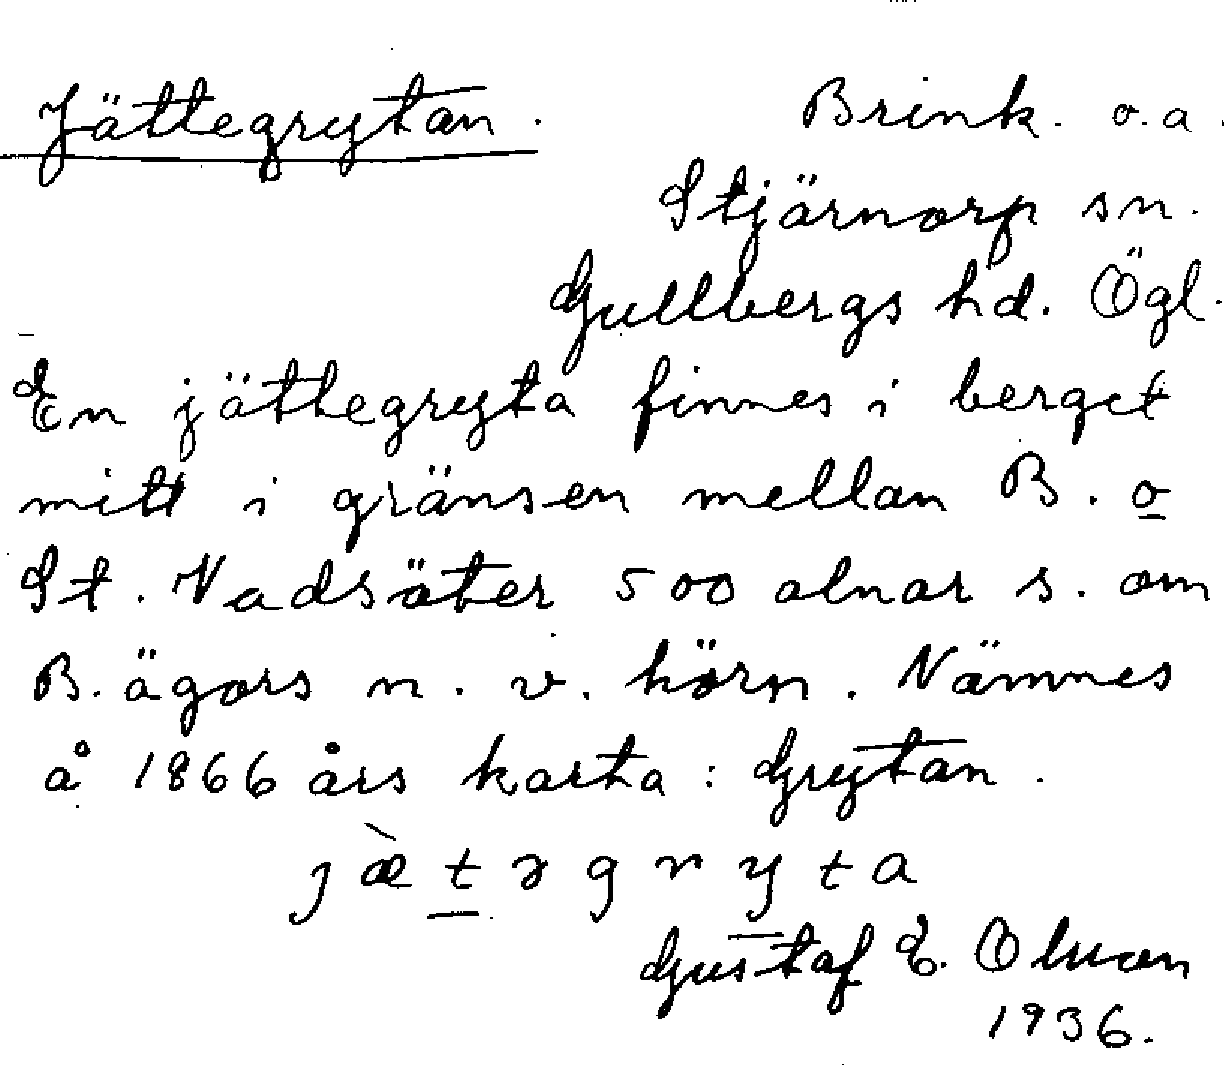 Jättegrytan. Brink. o.a.
Stjärnorp sn.
Gullbergs hd. Ögl.
En jättegryta finnes i berget
mitt i gränsen mellan B. o
St. Vadsäter 500 alnar s. om
B. ägors n. v. hörn. Nämnes
å 1866 års karta: Grytan.
jæ̀təgryta
Gustaf E.
1936.